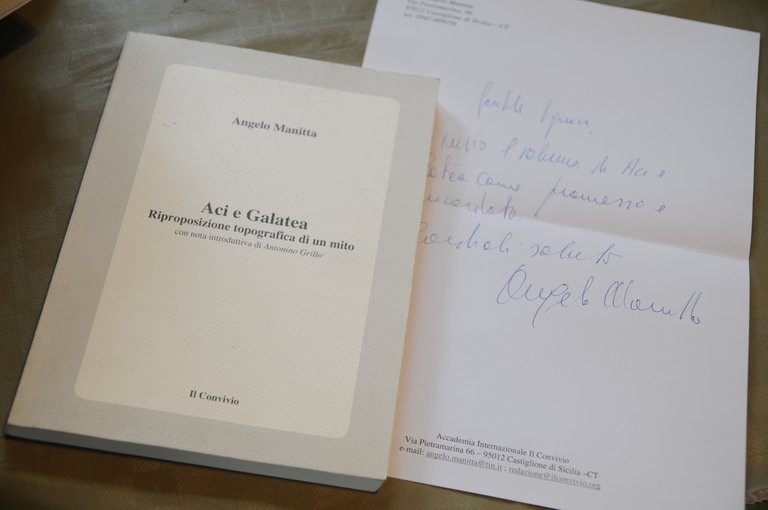 Angelo Manitta
Aci e Galatea
Riproposizione topografica di un mito
con nota introduttiva di Antonino Grillo
Il Convivio
Via Pietramarina 66
95012 Castiglione di Sicilia - CT
Gentile
invio il volume di Aci e
come promesso e
Cordiali saluti
Angelo Manitta
Accademia Internazionale Il Convivio
Via Pietramarina 66 – 95012 Castiglione di Sicilia –CT
e-mail: angelo.manitta@tin.it ; redazione@ilconvivio.org